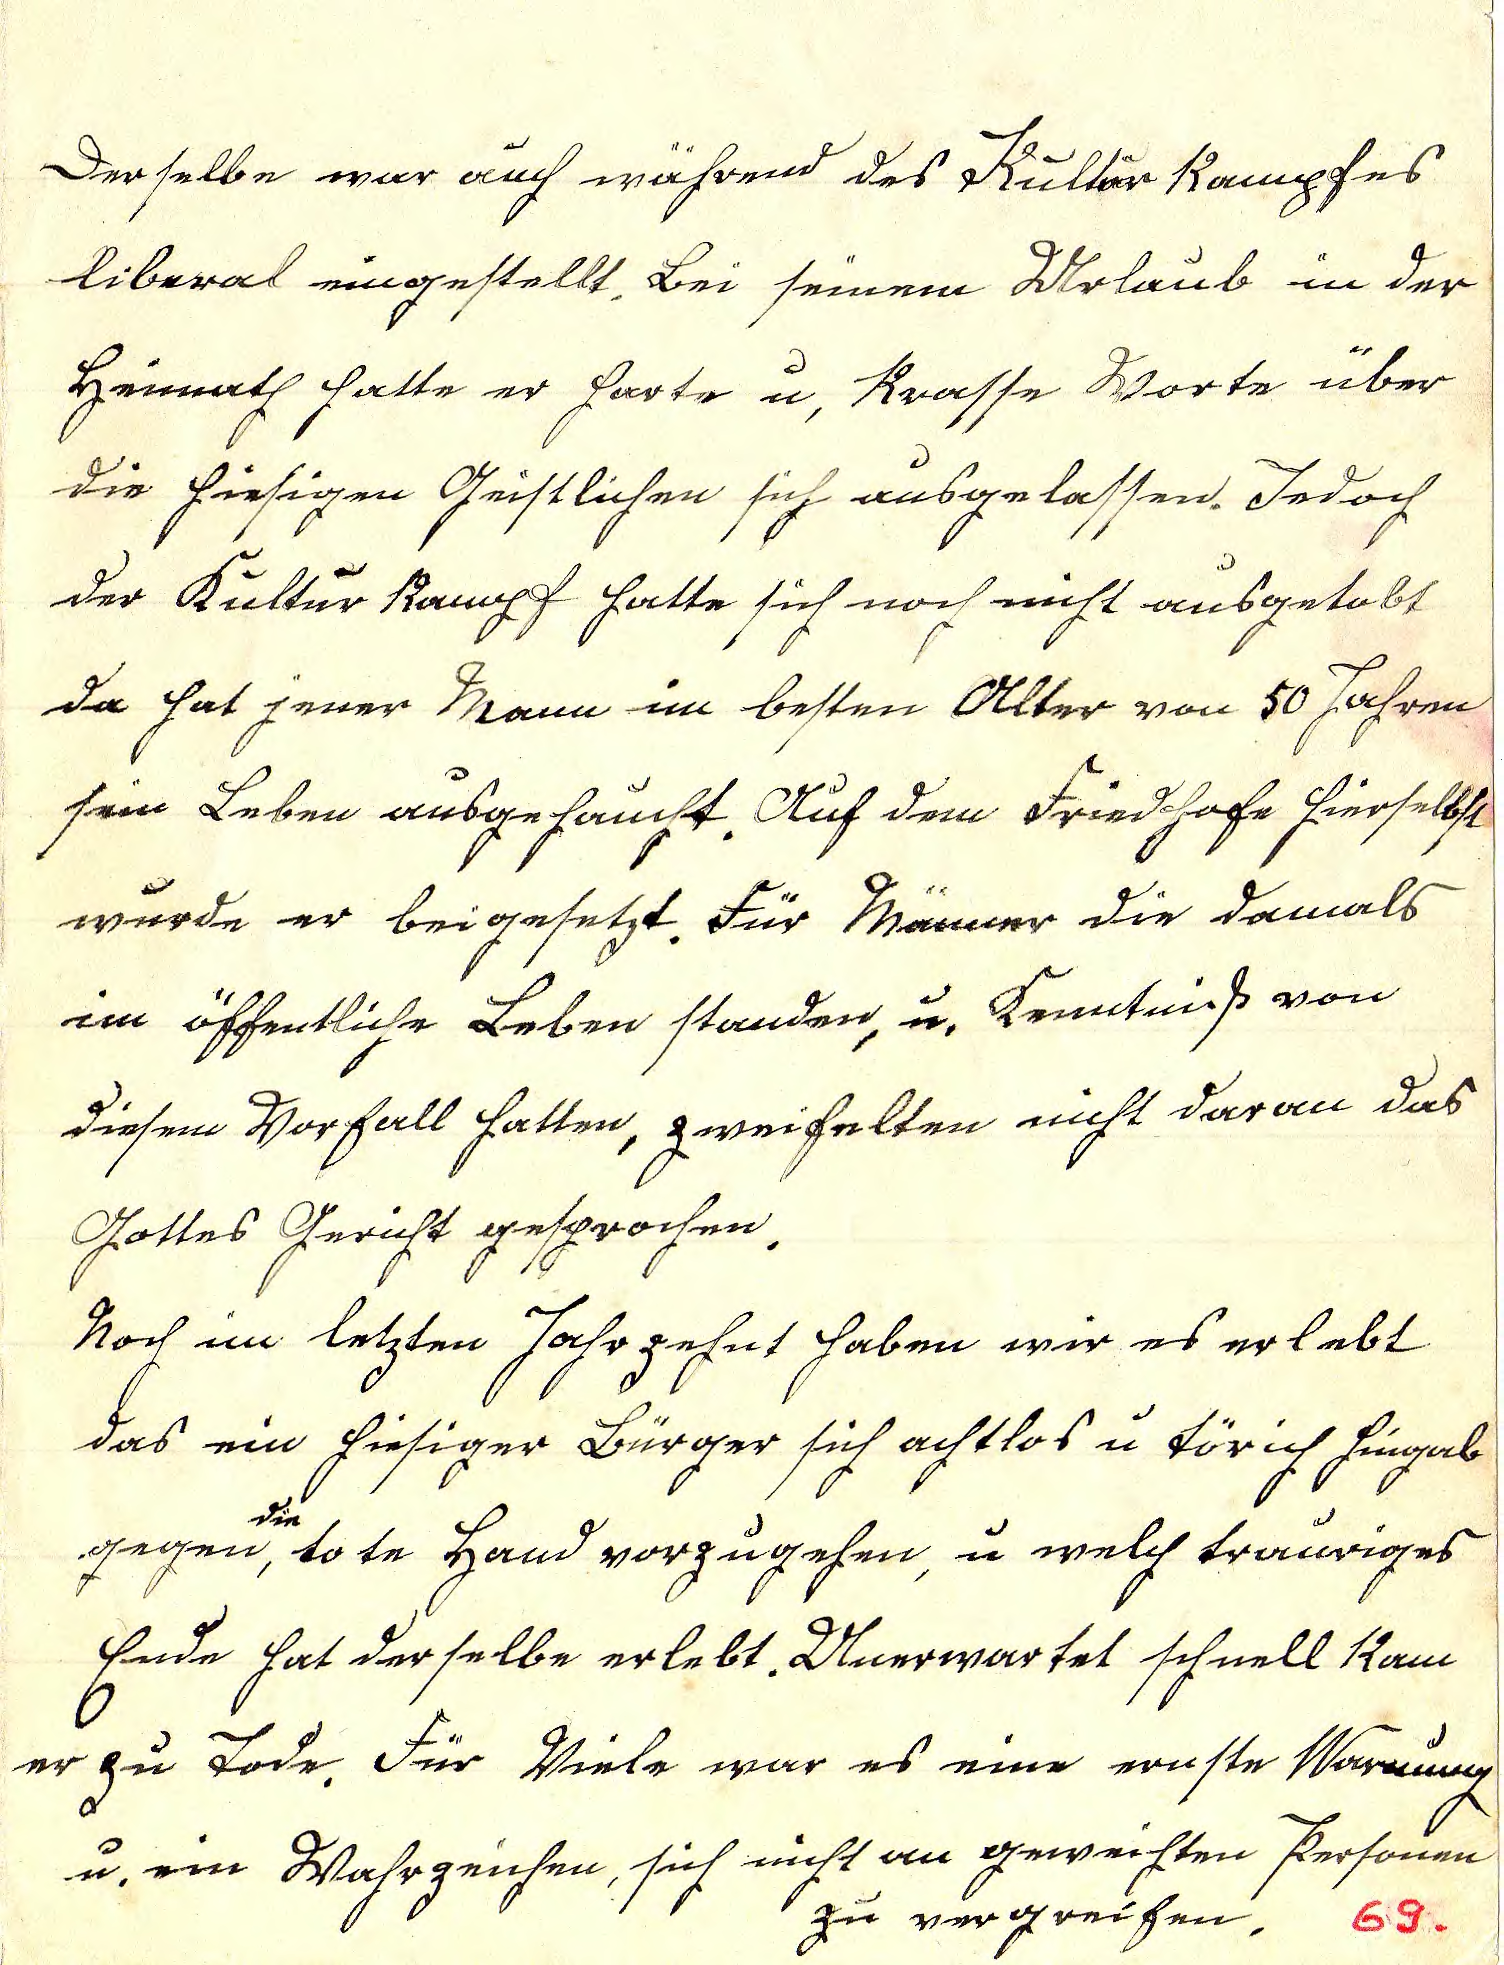 Derselbe war auch während des Kultur Kampfes
liberal eingestellt. Bei seinem Urlaub in der
Heimath hatte er harte u, krasse Worte über
die hiesigen Geistlichen sich ausgelassen. Jedoch
der Kultur Kampf hatte sich noch nicht ausgetobt
da hat jener Mann im besten Alter von 50 Jahren
sein Leben ausgehaucht. Auf dem Friedhofe hierselbst
wurde er beigesetzt. Für Männer die damals
im öffentliche Leben standen, u. Kenntniß von
diesem Vorfall hatten, zweifelten nicht daran das
Gottes Gericht gesprochen.
Noch im letzten Jahrzehnt haben wir es erlebt
das ein hiesiger Bürger sich achtlos u törich hingab
gegen, die tote Hand vorzugehen, u welch trauriges
Ende hat derselbe erlebt. Unerwartet schnell kam
er zu Tode. Für Viele war es eine ernste Warnung
u. ein Wahrzeichen, sich nicht an geweihten Personen
zu vergreifen. 69.